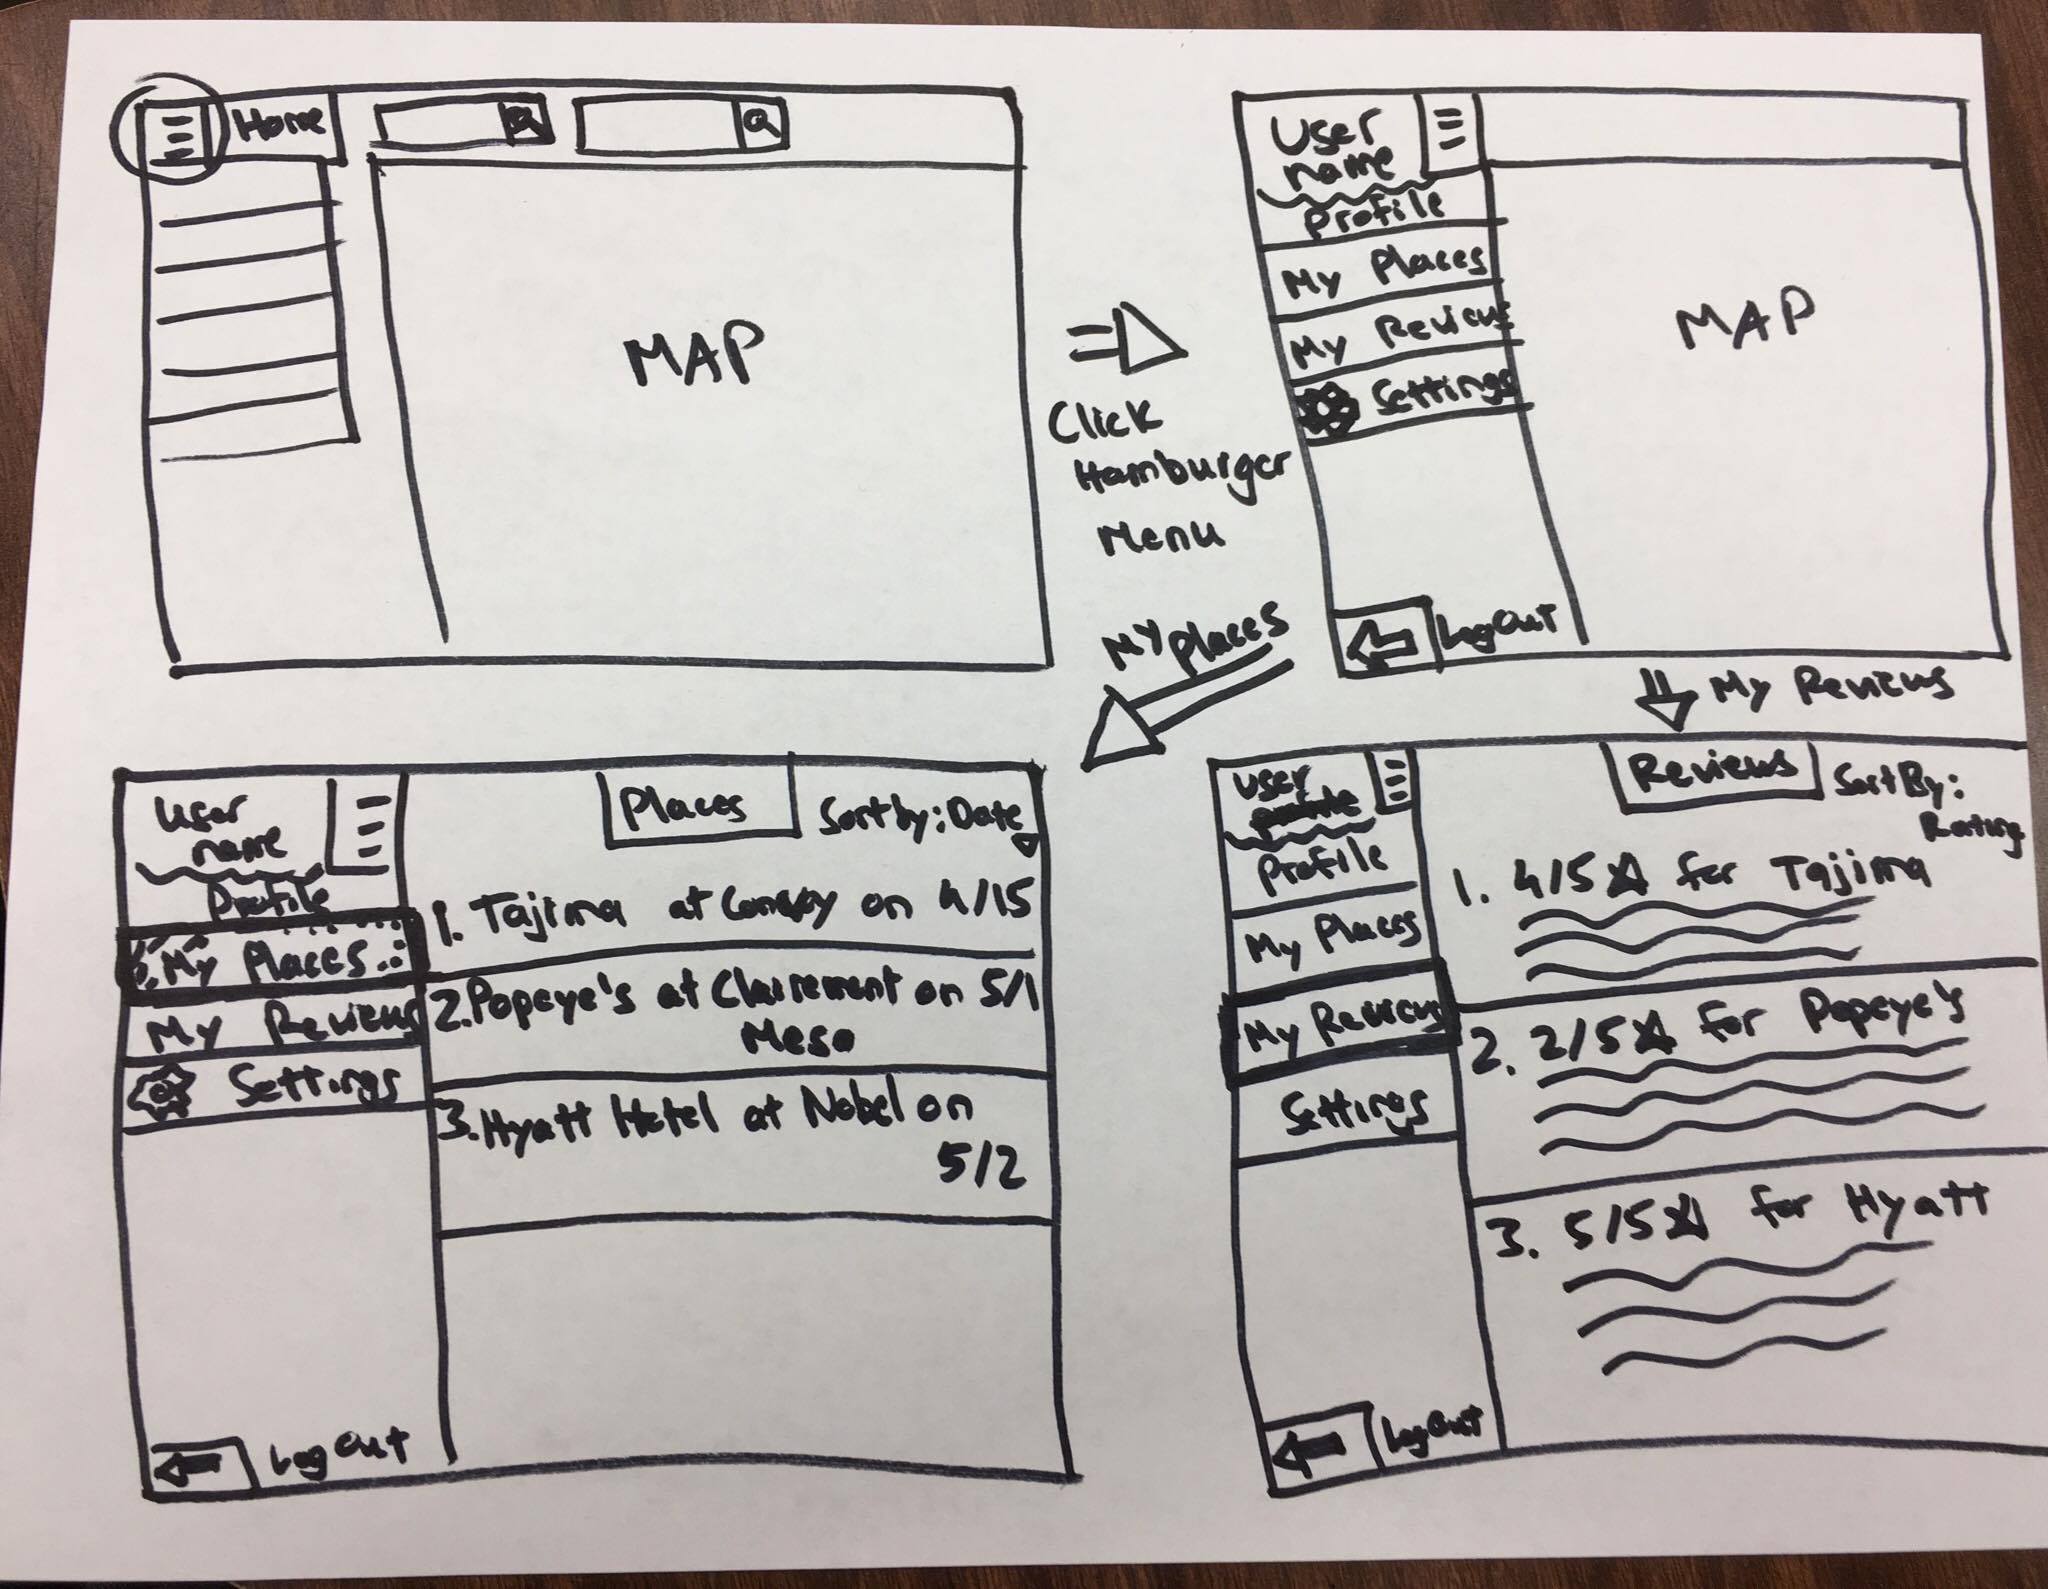 Home
MAP
Click
Hamburger
Menu
User
name
Profile
My Places
My Reviews
Settings
MAP
Log Out
My Places
My Reviews
User
name
Profile
My Places
My Reviews
Settings
Log Out
Places
Sort by: Date
1. Tajima at Convoy on 4/15
2. Popeye's at Clairemont on 5/1
Mesa
3. Hyatt Hotel at Nobel on
5/2
User
Profile
My Places
My Reviews
Settings
Log Out
Reviews
Sort By:
Rating
1. 4/5 ☆ for Tajima
2. 2/5 ☆ for Popeye's
3. 5/5 ☆ for Hyatt